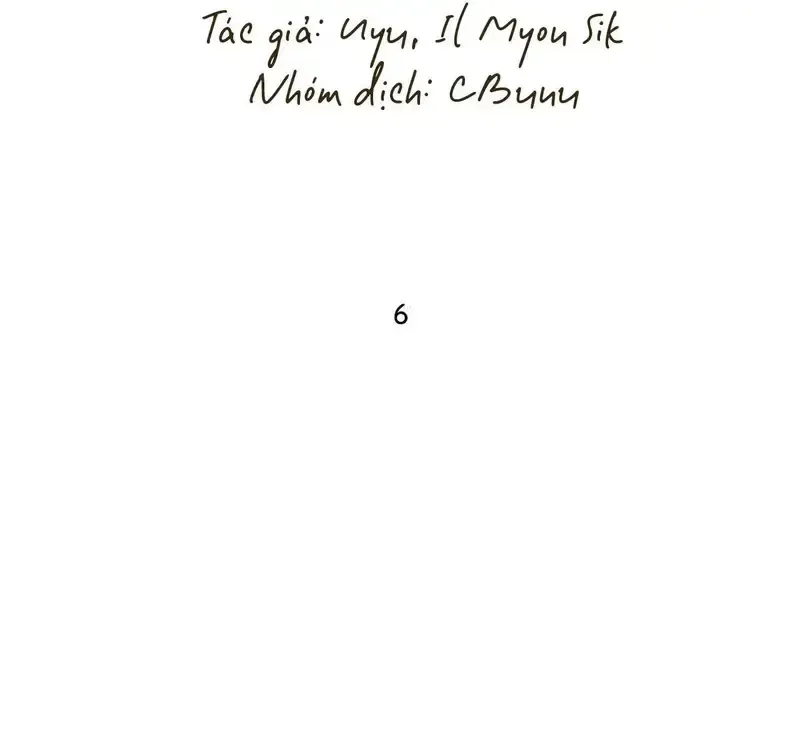 Tác giả: Uyu, Il Myou Sik
Nhóm dịch: CBunu
6